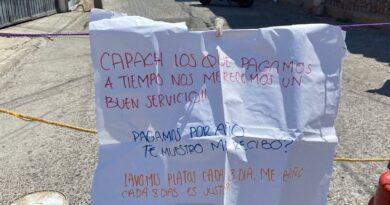 CAPACH LOS QUE PAGAMOS
A TIEMPO NOS MERECEMOS UN
BUEN SERVICIO!!
PAGAMOS POR AÑO
TE MUESTRO MI RECIBO?
LAVO MIS PLATOS CADA 8 DIA, ME BAÑO
CADA 8 DAS ES JUSTO?